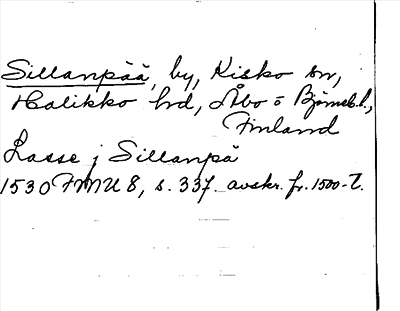 Sillanpää, by, Kisko sn,
Halikko hd, Åbo o Björneb.l.,
Finland
Lasse j Sillanpä
1530 FMU 8, s. 337. avskr. fr. 1500-t.